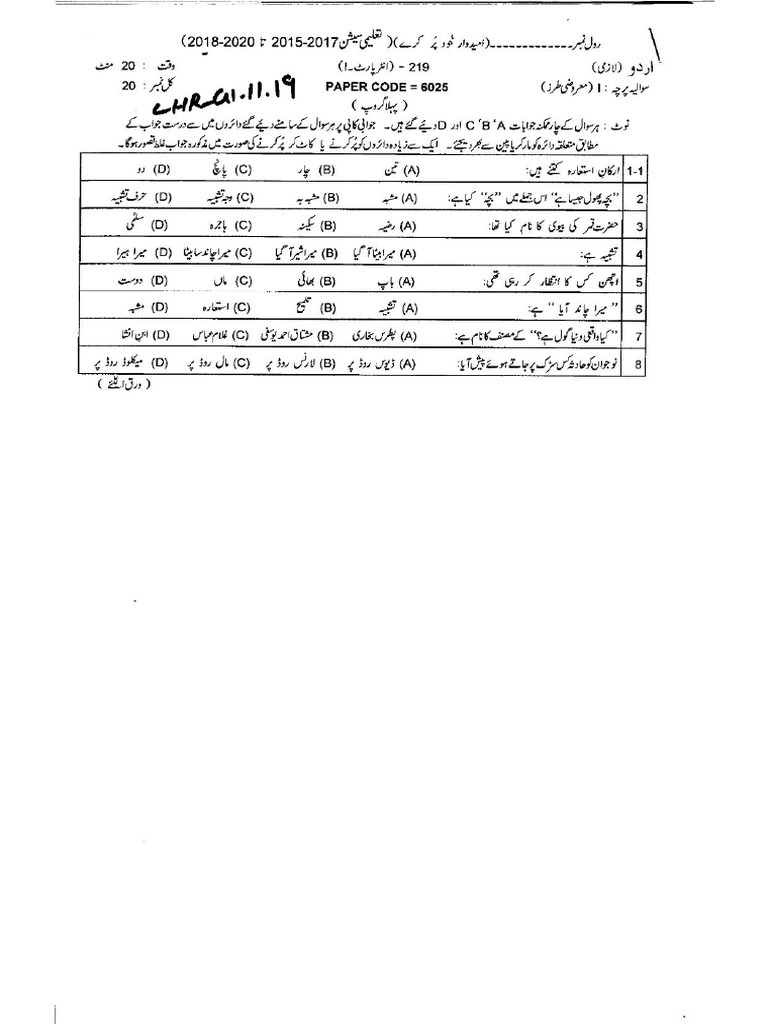 رول نمبر ------------- (امیدوار خود پُر کرے) (تعلیمی سیشن 2017-2015 تا 2020-2018)
اردو (لازمی) 219 - (انٹر پارٹ - I) وقت : 20 منٹ
سوالیہ پرچہ : I (معروضی طرز) PAPER CODE = 6025 کل نمبر : 20
(پہلا گروپ) LHR-G1-11-19
نوٹ : ہر سوال کے چار ممکنہ جوابات A ‘B ‘C اور D دیئے گئے ہیں۔ جوابی کاپی پر ہر سوال کے سامنے دیئے گئے دائروں میں سے درست جواب کے
مطابق متعلقہ دائرہ کو مارکر یا پین سے بھر دیجئے۔ ایک سے زیادہ دائروں کو پُر کرنے یا کاٹ کر پُر کرنے کی صورت میں مذکورہ جواب غلط تصور ہوگا۔
1-1 ارکانِ استعارہ کتنے ہیں: (A) تین (B) چار (C) پانچ (D) دو
2 ’’بچہ پھول جیسا ہے‘‘ اس جملے میں ’’بچہ‘‘ کیا ہے: (A) مشبہ (B) مشبہ بہ (C) وجہ تشبیہ (D) حرف تشبیہ
3 حضرت قمر کی بیوی کا نام کیا تھا: (A) رضیہ (B) سکینہ (C) ہاجرہ (D) سلمٰی
4 تشبیہ ہے: (A) میرا بیٹا آ گیا (B) میرا شیر آ گیا (C) میرا چاند سا بیٹا (D) میرا ہیرا
5 اچھن کس کا انتظار کر رہی تھی: (A) باپ (B) بھائی (C) ماں (D) دوست
6 ’’میرا چاند آیا‘‘ ہے: (A) تشبیہ (B) تلمیح (C) استعارہ (D) مشبہ
7 ’’کیا واقعی دنیا گول ہے؟‘‘ کے مصنف کا نام ہے: (A) پطرس بخاری (B) مشتاق احمد یوسفی (C) غلام عباس (D) ابنِ انشا
8 نوجوان کو حادثہ کس سڑک پر جاتے ہوئے پیش آیا: (A) ڈیوس روڈ پر (B) لارنس روڈ پر (C) مال روڈ پر (D) میکلوڈ روڈ پر
(ورق الٹئے)